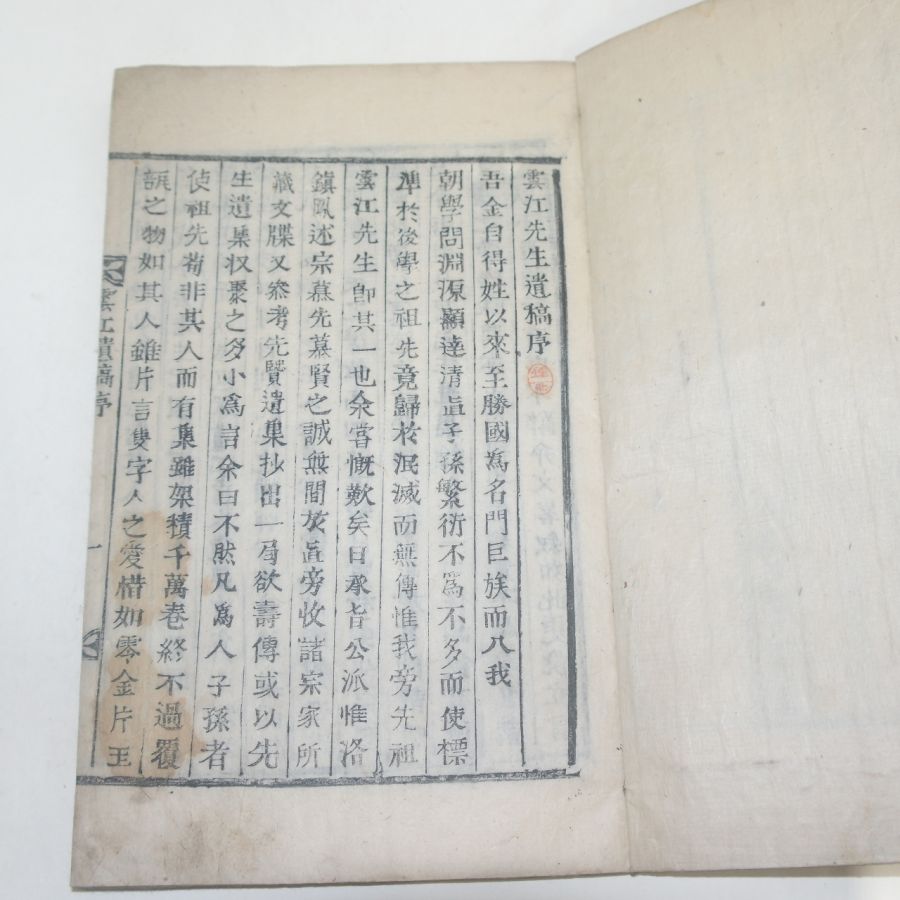 雲江先生遺稿序
吾金自得姓以來至勝國為名門巨族而入我
朝學問淵源顯達清直子孫繁衍不為不多而使標
準於後學之祖先竟歸於泯滅而無傳惟我旁先祖
雲江先生卽其一也余嘗慨歎矣日承旨公派惟洛
鎭夙述宗慕先慕賢之誠無間於直旁收諸宗家所
藏文牒又叅考先賢遺集抄出一局欲壽傳或以先
生遺集収聚之多小為言余曰不然凡為人子孫者
使祖先苟非其人而有集雖架積千萬卷終不過覆
瓿之物如其人雖片言隻字人之愛惜如零金片玉
雲江遺稿序
一